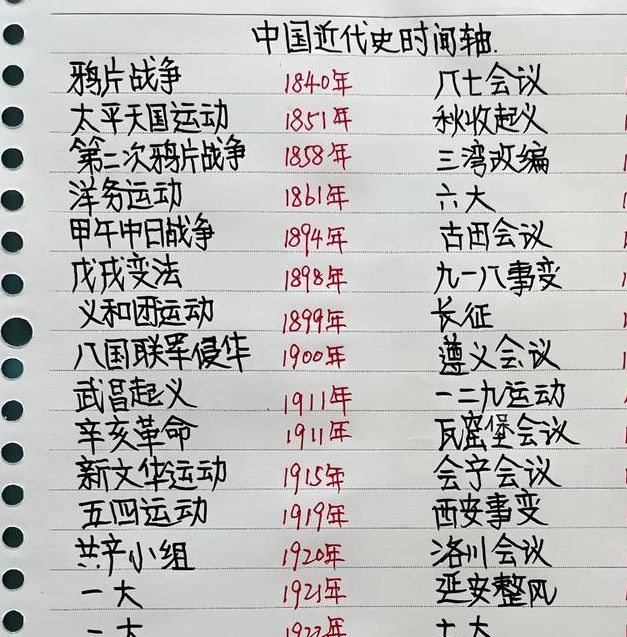 中国近代史时间轴.
鸦片战争 1840年 八七会议
太平天国运动 1851年 秋收起义
第二次鸦片战争 1858年 三湾改编
洋务运动 1861年 六大
甲午中日战争 1894年 古田会议
戊戌变法 1898年 九一八事变
义和团运动 1899年 长征
八国联军侵华 1900年 遵义会议
武昌起义 1911年 一二九运动
辛亥革命 1911年 瓦窑堡会议
新文华运动 1915年 会宁会议
五四运动 1919年 西安事变
共产小组 1920年 洛川会议
一大 1921年 延安整风
大 1922年 大